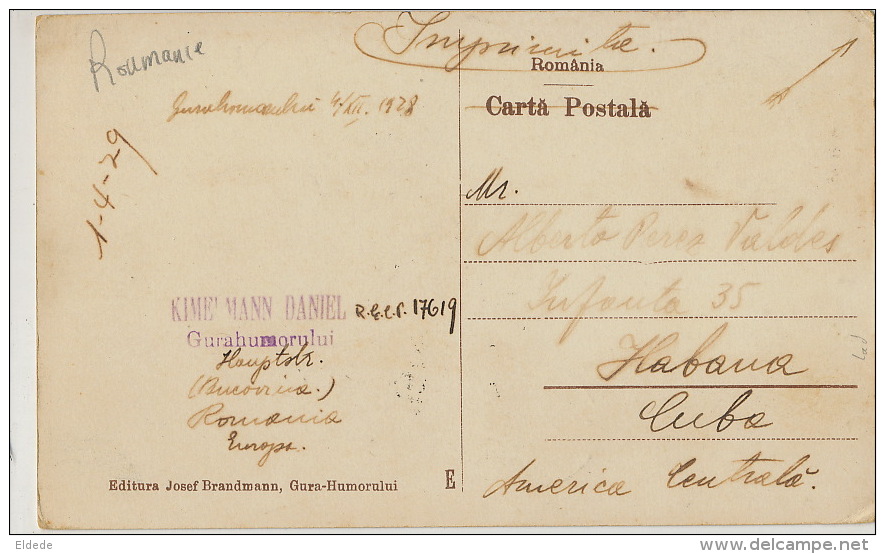 Roumanie
Imprimite.
România
Cartă Postală
Gurahumorului 4/XII. 1928
1-4-29
Mr.
Alberto Perez Valdes
Infanta 35
Habana
Cuba
America Centrală.
KIME' MANN DANIEL
17619
Gurahumorului
Hauptstr.
(Bucovina.)
Romania
Europa.
Editura Josef Brandmann, Gura-Humorului
E
Eldede
delcampe.net